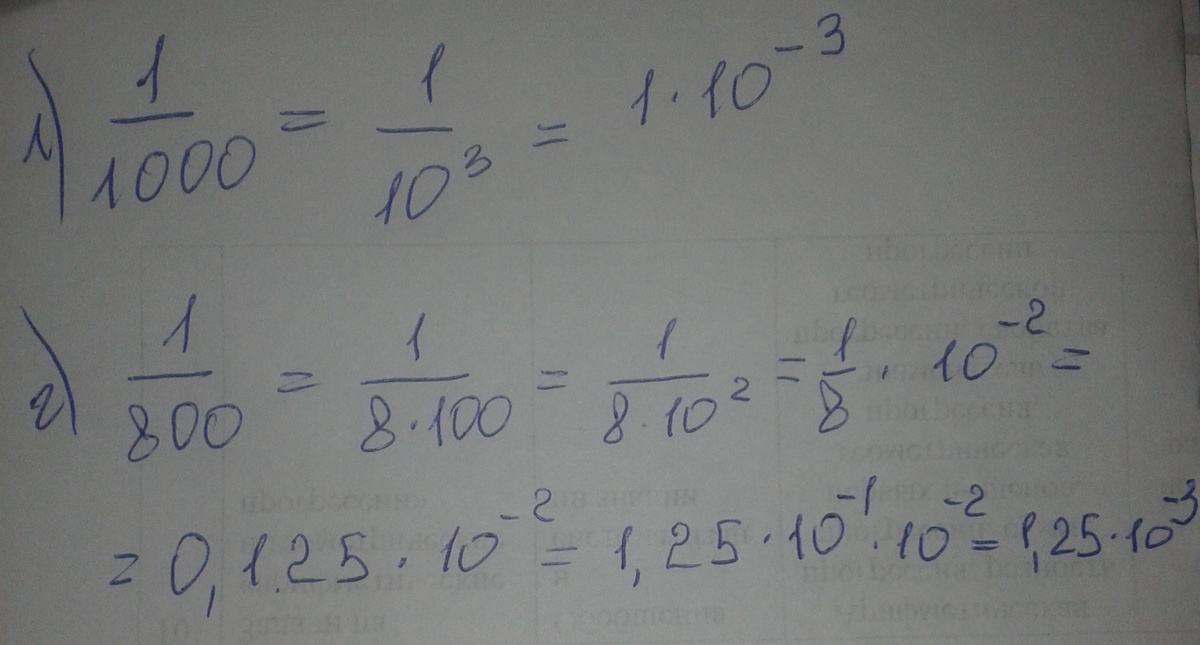 1) 1/1000 = 1/10³ = 1·10⁻³
2) 1/800 = 1/(8·100) = 1/(8·10²) = 1/8 · 10⁻² =
= 0,125·10⁻² = 1,25·10⁻¹·10⁻² = 1,25·10⁻³